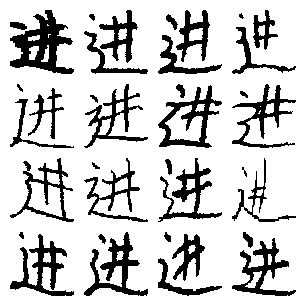 进进进进
进进进进
进进进进
进进进进